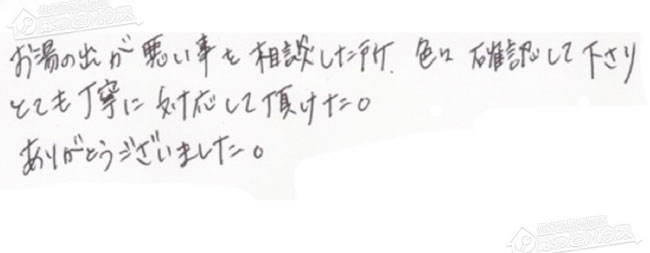 お湯の出が悪い事を相談した所、色々確認して下さり
とても丁寧に対応して頂けた。
ありがとうございました。